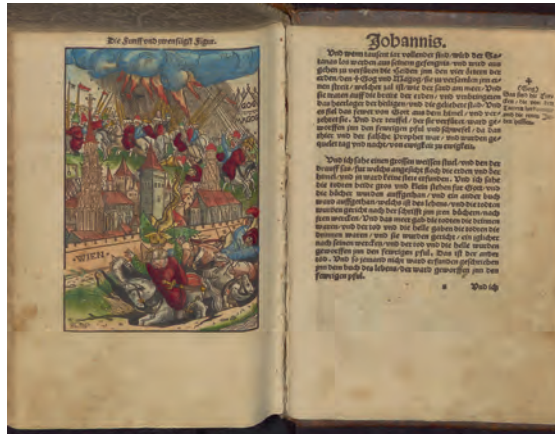 Die Funff vnd zwensigst Figur.
WIEN
Johannis.
Vnd wenn tausent iar vollendet sind / wird der Sa-
tanas los werden aus seinem gefengnis / vnd wird aus
gehen zu verfüren die Heiden jnn den vier örtern der
erden / den Gog vnd Magog / sie zu versamlen jnn ei-
nen streit / welcher zal ist / wie der sand am meer / Vnd
sie traten auff die breite der erden / vnd vmbringeten
das heerlager der heiligen / vnd die geliebete stad. Vnd
es fiel das fewer von Gott aus dem himel / vnd ver-
zehret sie. Vnd der teuffel / der sie verfüret ward ge-
worffen jnn den fewrigen pful vnd schwefel / da das
thier vnd der falsche Prophet war / vnd wurden ge-
quelet tag vnd nacht / von ewigkeit zu ewigkeit.
(Gog)
Das sind die
Vnd ich sahe einen grossen weissen stuel / vnd den der
drauff sas / fur welchs angesicht floch die erden vnd der
himel / vnd jn ward keine stete erfunden. Vnd ich sahe
die todten beide gros vnd klein stehen fur Gott / vnd
die bücher wurden auffgethan / vnd ein ander buch
ward auffgethan / welchs ist des lebens / vnd die todten
wurden gericht nach der schrifft jnn den büchern / nach
jren wercken / Vnd das meer gab die todten die drinnen
waren / vnd der tod vnd die helle gaben die todten die
drinnen waren / vnd sie wurden gericht / ein iglicher
nach seinen wercken / vnd der tod vnd die helle wurden
geworffen jnn den fewrigen pful. Das ist der ander
tod. Vnd so jemand nicht ward erfunden geschrieben
jnn dem buch des lebens / der ward geworffen jnn den
fewrigen pful.
Vnd ich